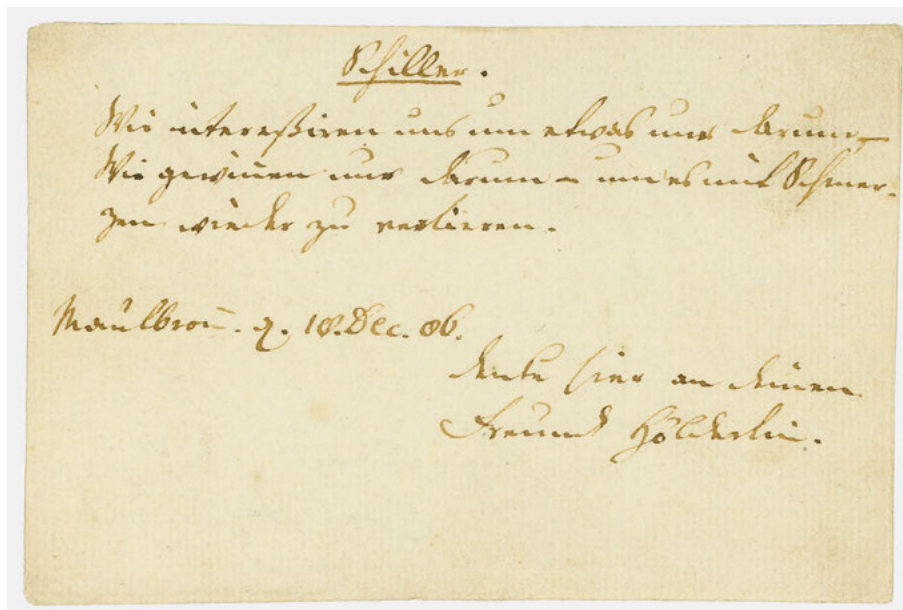 Schiller.
Wir intereßiren uns um etwas nur darum –
Wir gewinnen nur darum – um es mit Schmer-
zen wieder zu verlieren.
Maulbroñ. d. 18. Dec. 86.
denke hier an deinen
Freund Hölderlin.